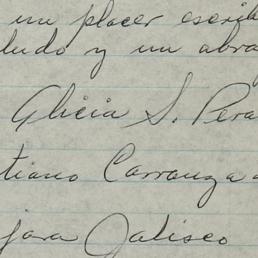 un placer escrib
ludo y un abra
Alicia S. Pera
tiano Carranza
jara Jalisco